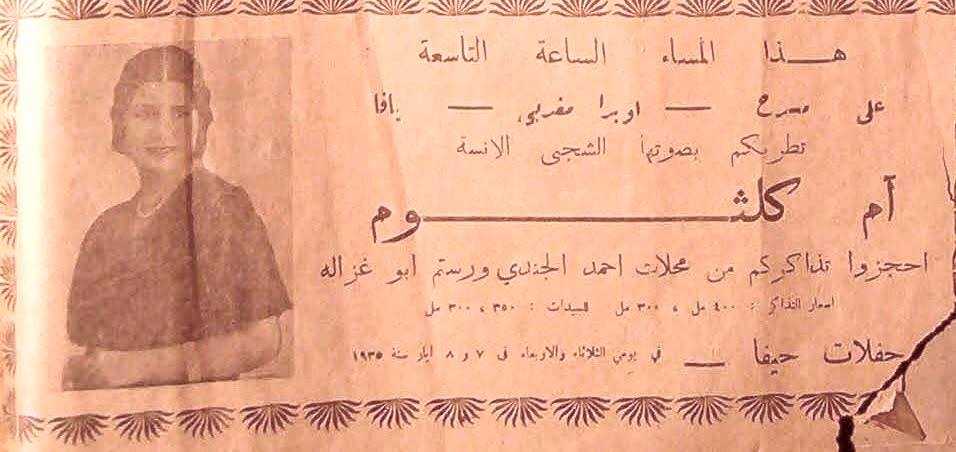 هذا المساء الساعة التاسعة
على مسرح — اوبرا مغربي — يافا
تطربكم بصوتها الشجي الانسة
آم كلثوم
احجزوا تذاكركم من محلات احمد الجندي ورستم ابو غزاله
اسعار التذاكر : ٤٠٠ مل ، ٣٠٠ مل للسيدات : ٣٥٠ ، ٣٠٠ مل
حفلات حيفا — في يومي الثلاثاء والاربعاء في ٧ و ٨ ايار سنة ١٩٣٥